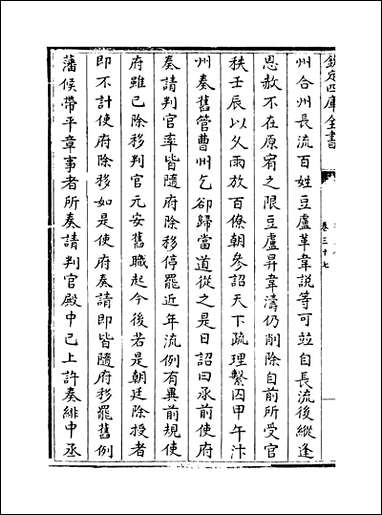 欽定四庫全書
卷三十七
州合州長流百姓豆盧革韋說等可並自長流後縱逢
恩赦不在原宥之限豆盧昇韋濤仍削除自前所受官
秩壬辰以久雨放百僚朝參詔天下疏理繫囚甲午汴
州奏舊管曹州乞卻歸當道從之是日詔曰承前使府
奏請判官率皆隨府除移停罷近年流例有異前規使
府雖已除移判官元安舊職起今後若是朝廷除授者
即不計使府除移如是使府奏請即皆隨府移罷舊例
藩侯帶平章事者所奏請判官殿中已上許奏緋中丞